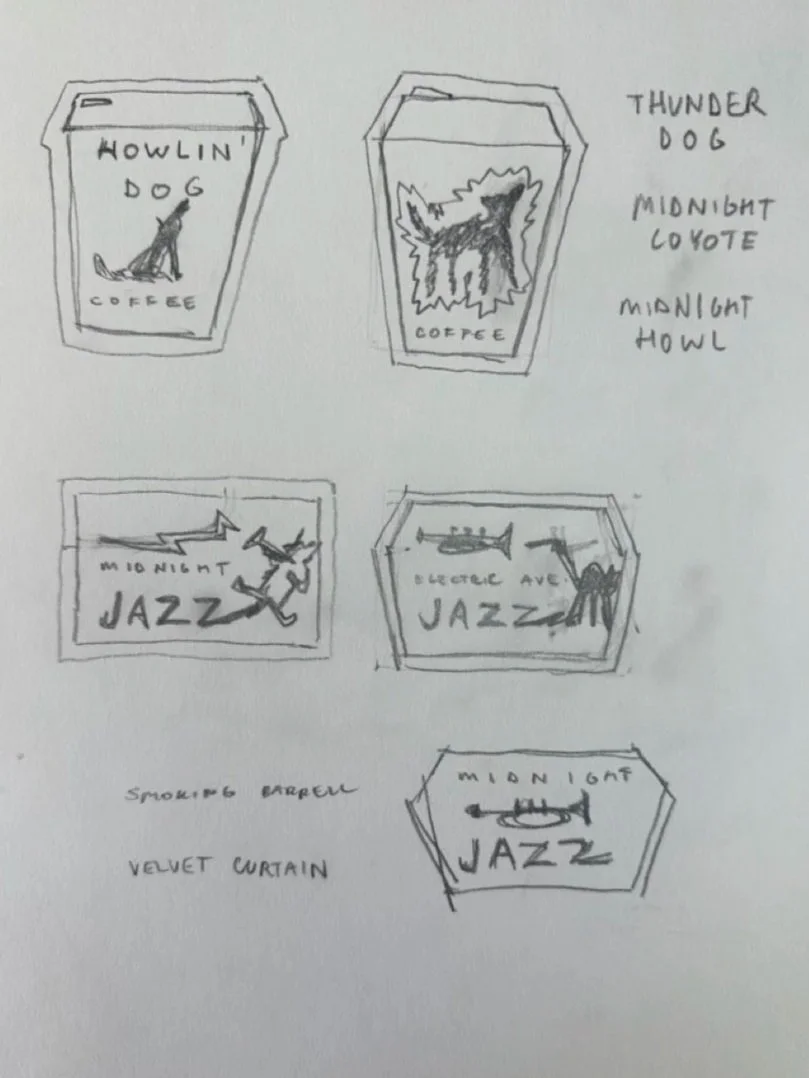 HOWLIN'
DOG
COFFEE
COFFEE
THUNDER
DOG
MIDNIGHT
COYOTE
MIDNIGHT
HOWL
MIDNIGHT
JAZZ
ELECTRIC AVE.
JAZZ
SMOKING BARRELL
VELVET CURTAIN
MIDNIGHT
JAZZ